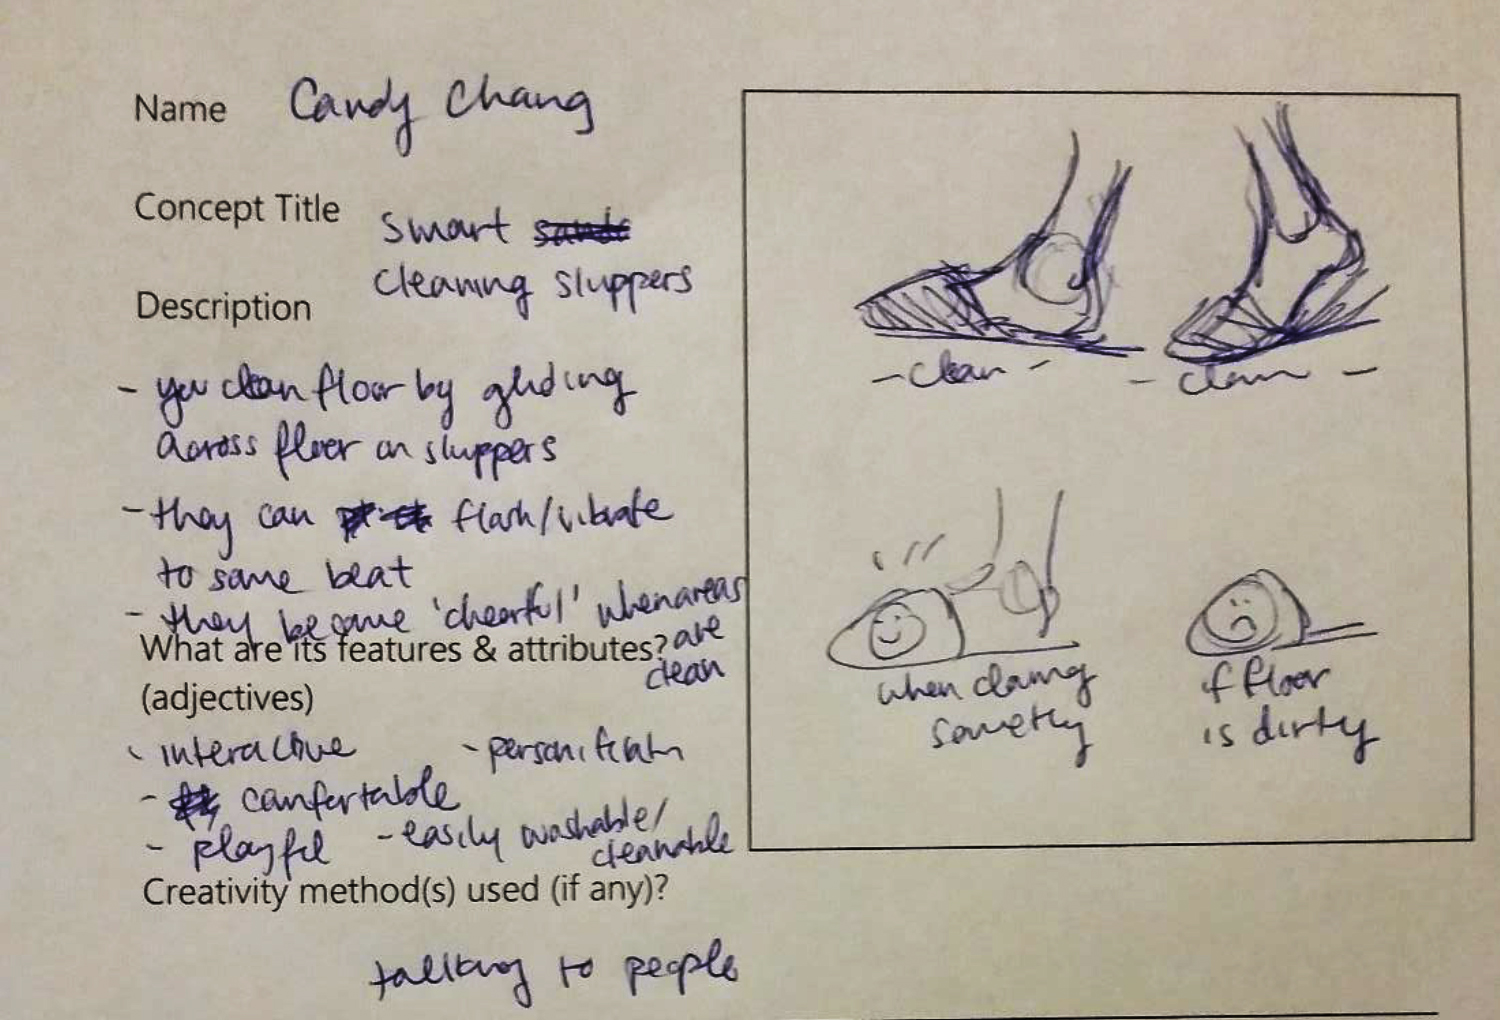 Name Candy Chang
Concept Title smart
cleaning sluppers
Description
- you clean floor by gliding
across floor on sluppers
- they can flash/vibrate
to same beat
- they become 'cheerful' when areas
are
clean
What are its features & attributes?
(adjectives)
- interactive - personificatn
- comfortable
- playful - easily washable/
cleanable
Creativity method(s) used (if any)?
talking to people
- clean - - clean -
when claing
somethg
if floor
is dirty